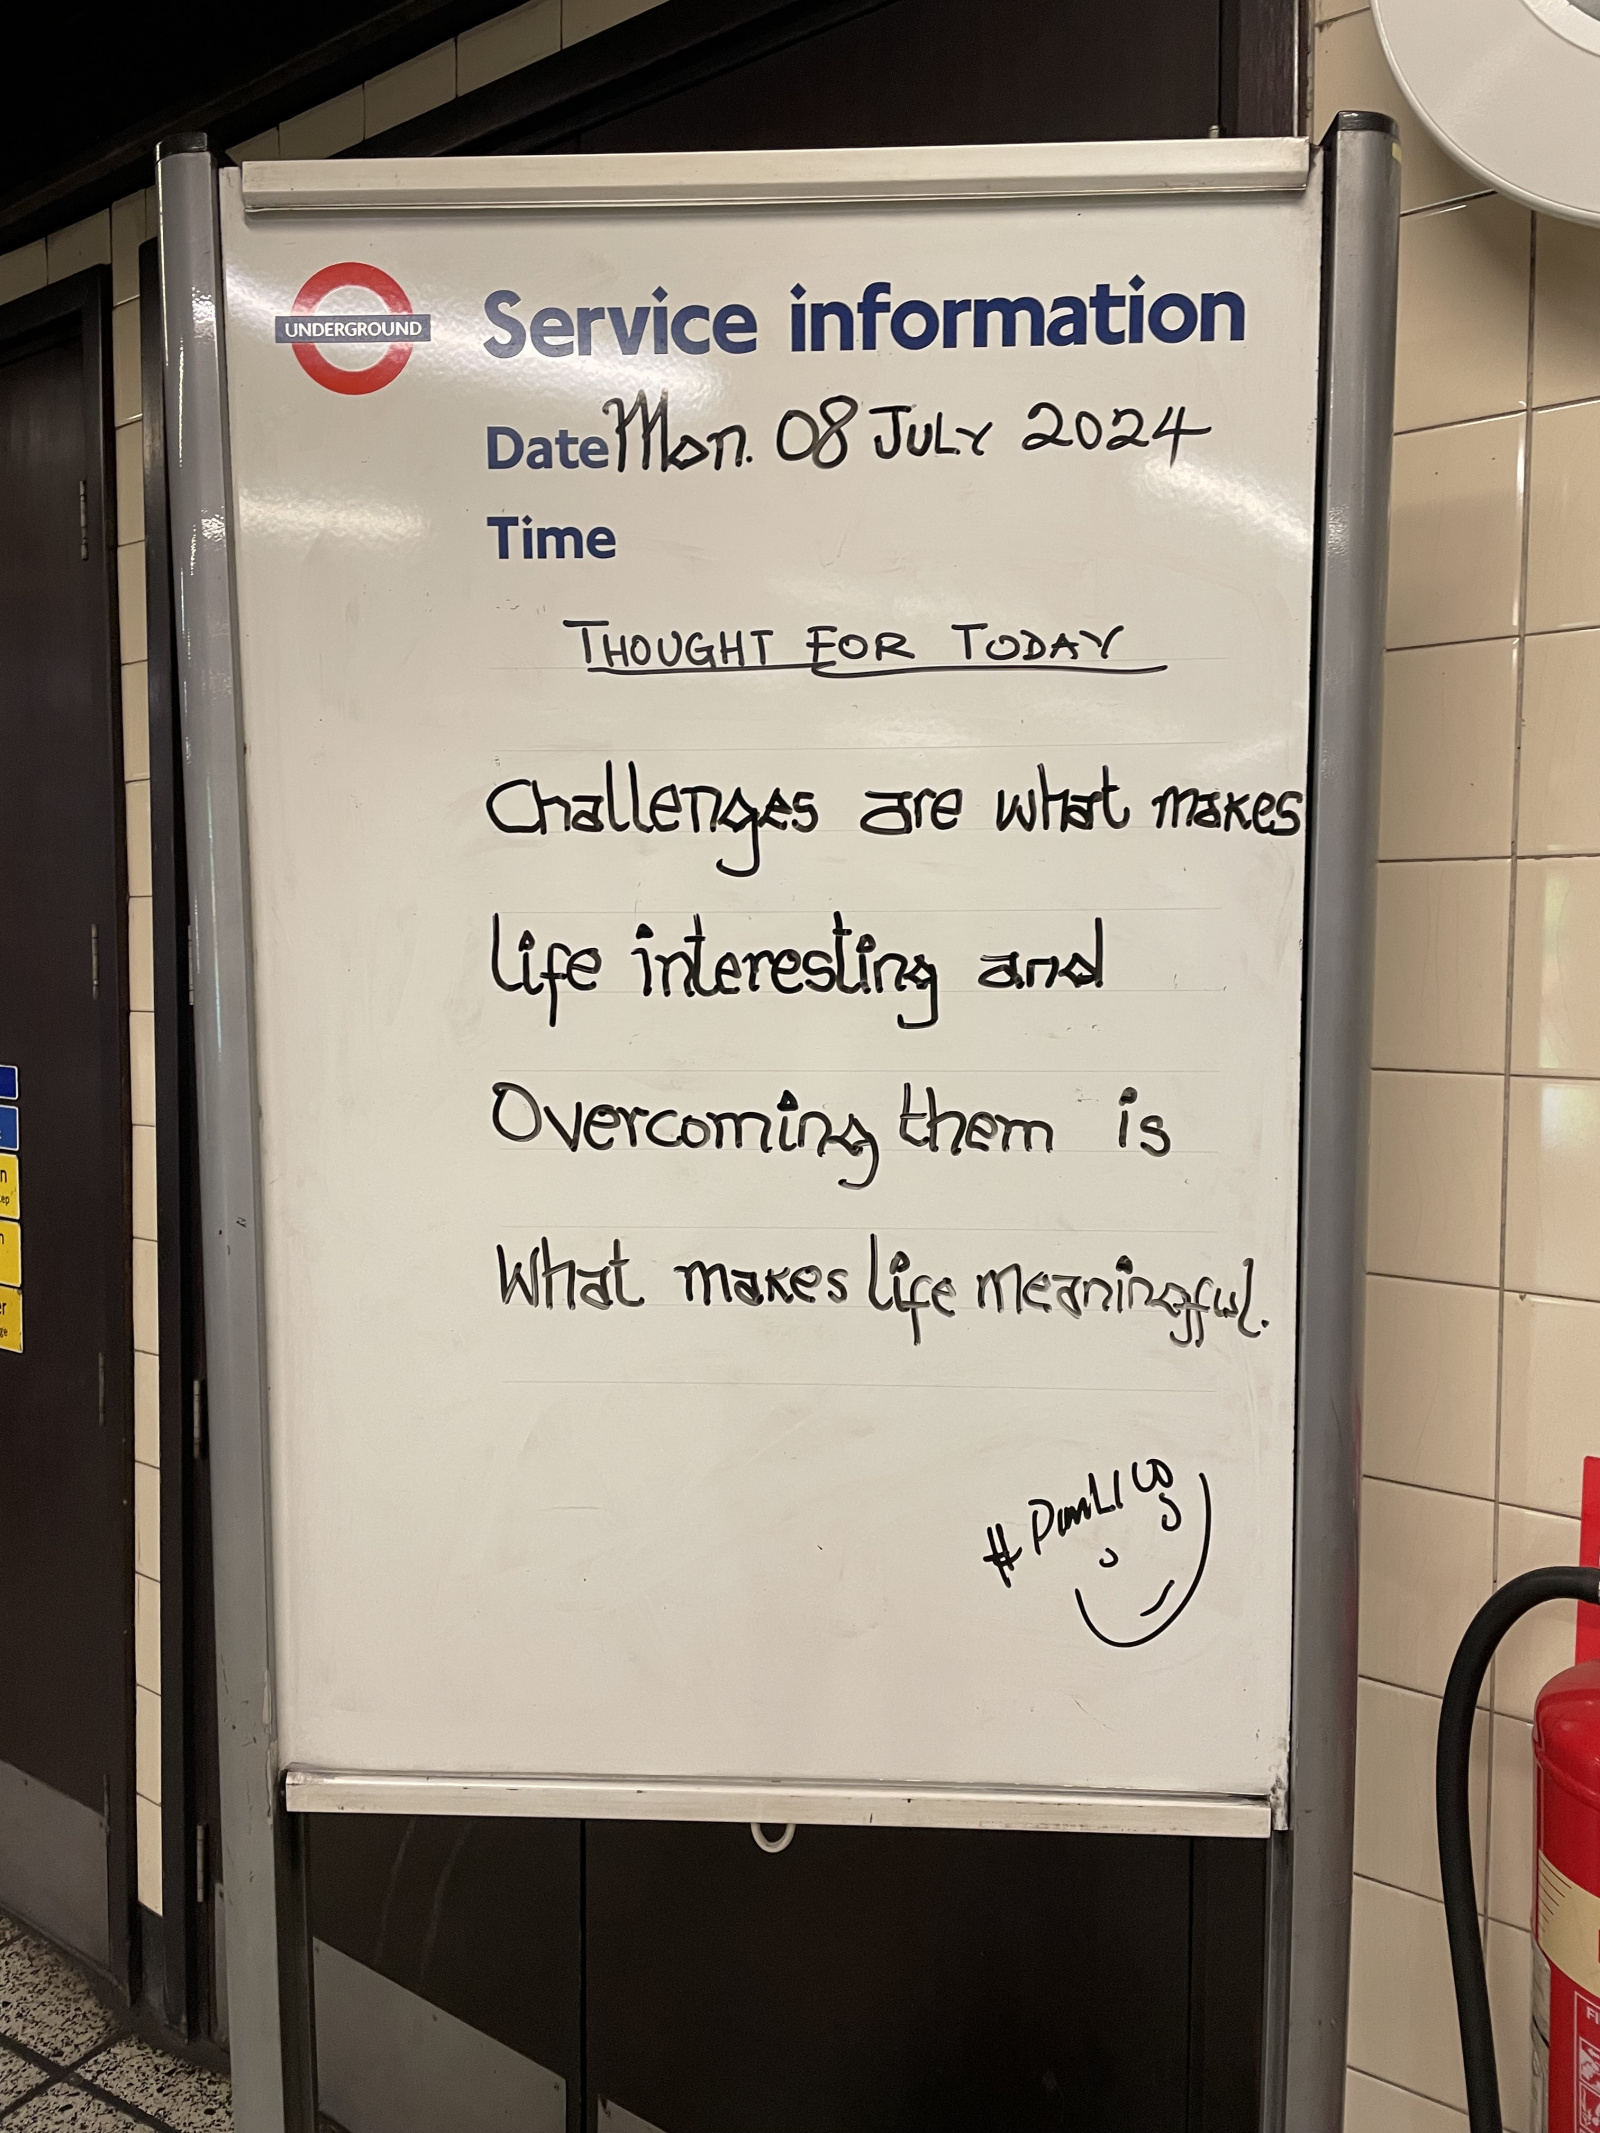 UNDERGROUND
Service information
Date Mon. 08 JULY 2024
Time
THOUGHT FOR TODAY
Challenges are what makes
life interesting and
Overcoming them is
What makes life meaningful.